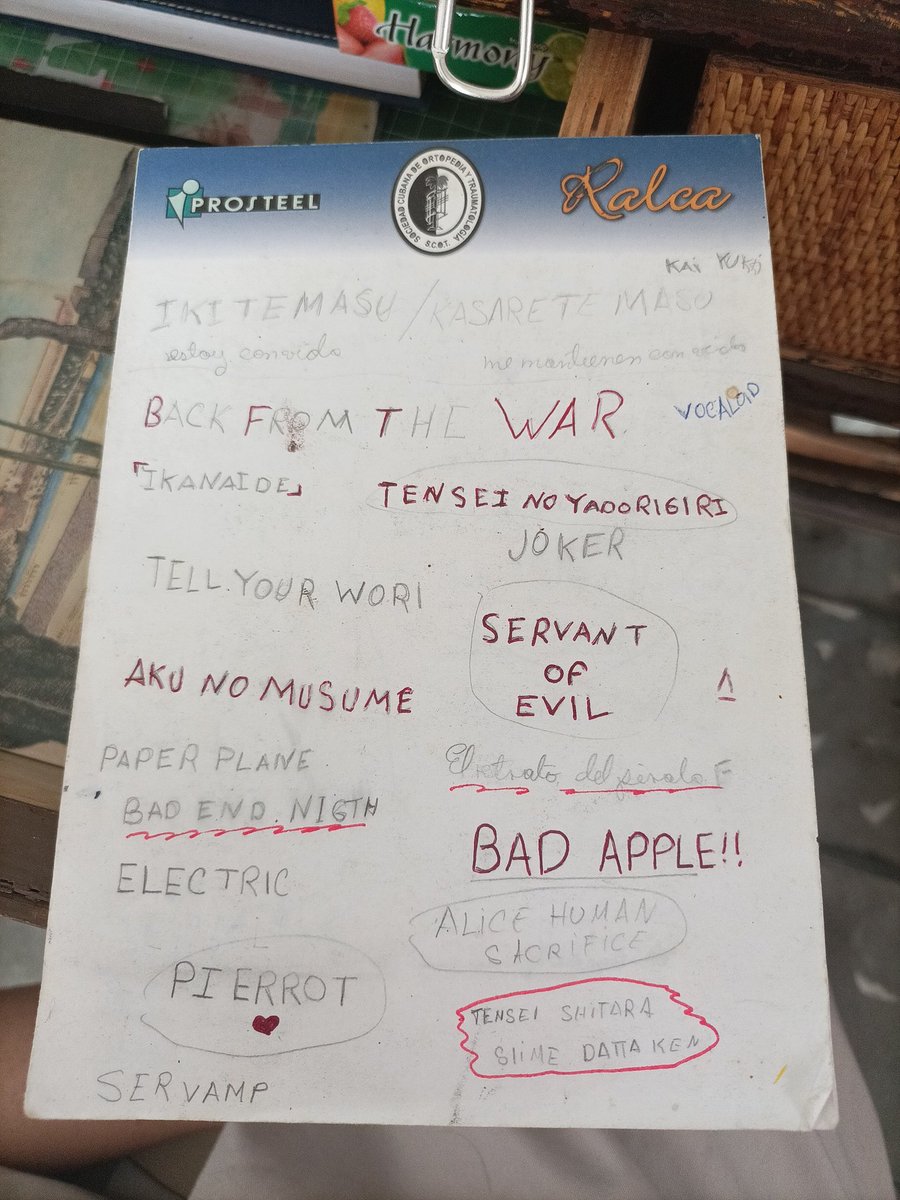 Harmony
PROSTEEL
SOCIEDAD CUBANA DE ORTOPEDIA Y TRAUMATOLOGIA
S.C.O.T.
Ralca
KAI YUKI
IKITEMASU / KASARETE MASU
estoy convida
me mantienen con vida
BACK FROM THE WAR
VOCALOID
「IKANAIDE」
TENSEI NO YADORIGIRI
JOKER
TELL YOUR WORl
SERVANT
OF
EVIL
AKU NO MUSUME
PAPER PLANE
El retrato del pirata F
BAD END. NIGTH
BAD APPLE!!
ELECTRIC
ALICE HUMAN
SACRIFICE
PIERROT
TENSEI SHITARA
SlIME DATTA KEN
SERVAMP